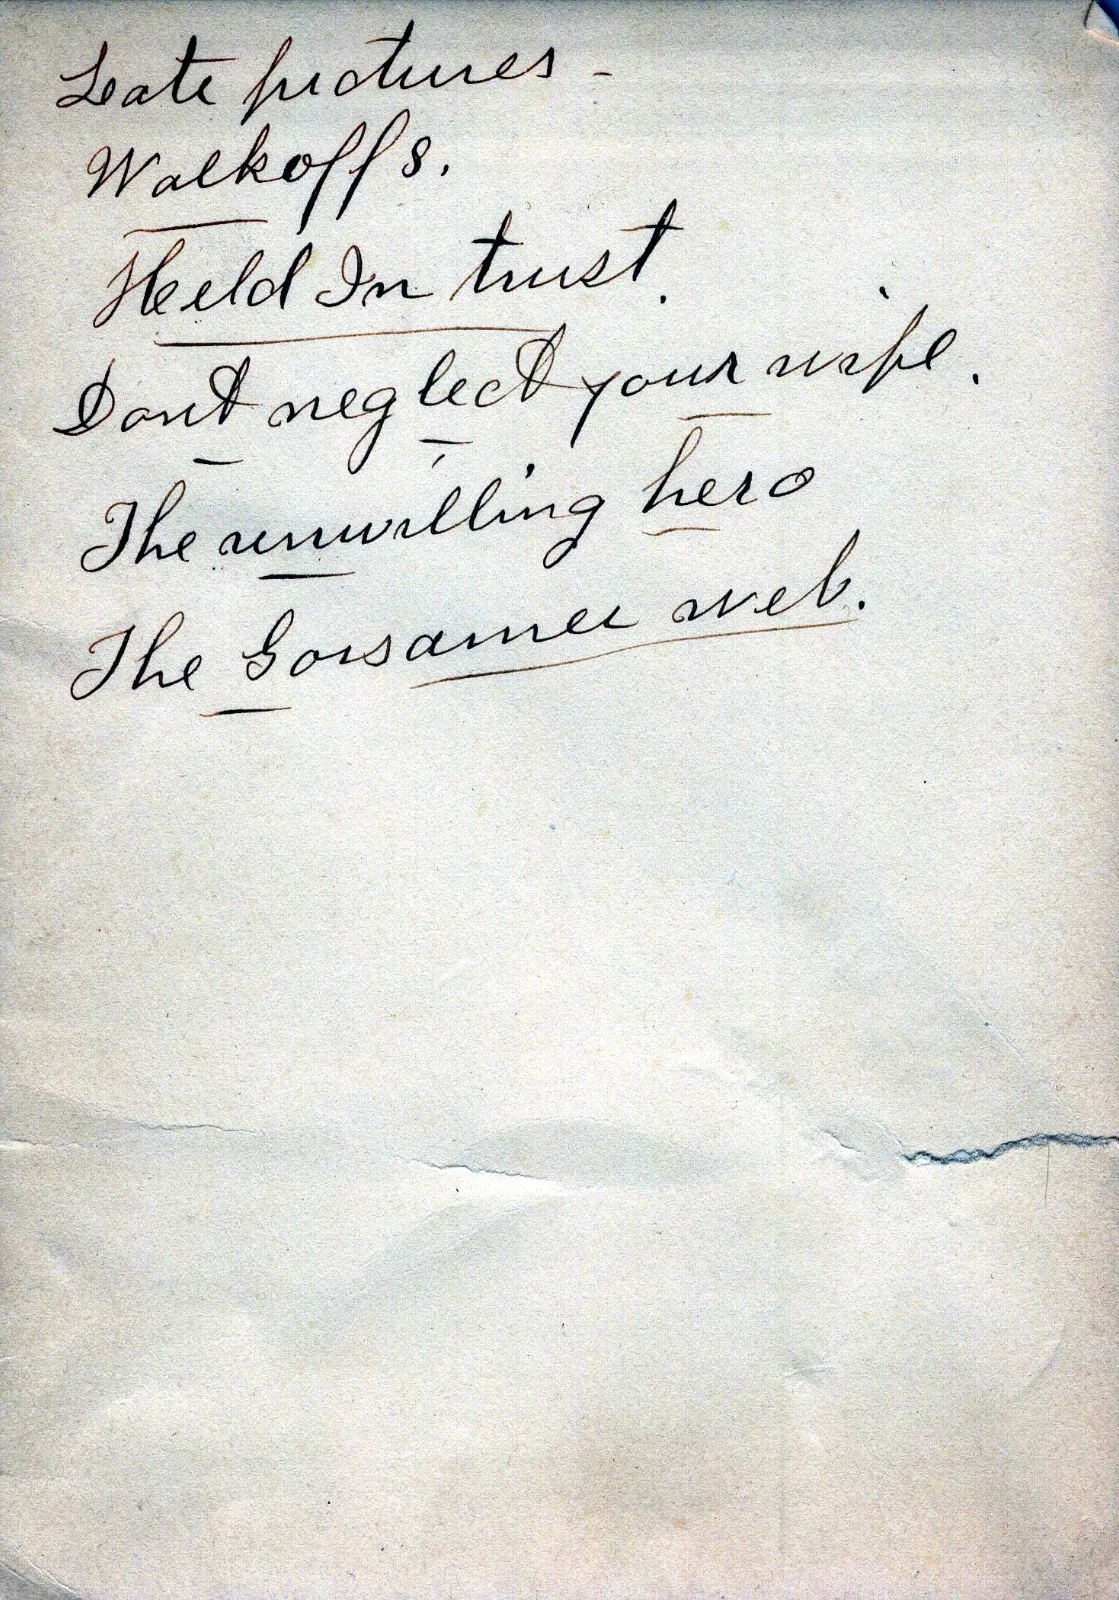 Late pictures -
Walkoffs.
Held In trust.
Dont neglect your wife.
The unwilling hero
The Gorsamer web.